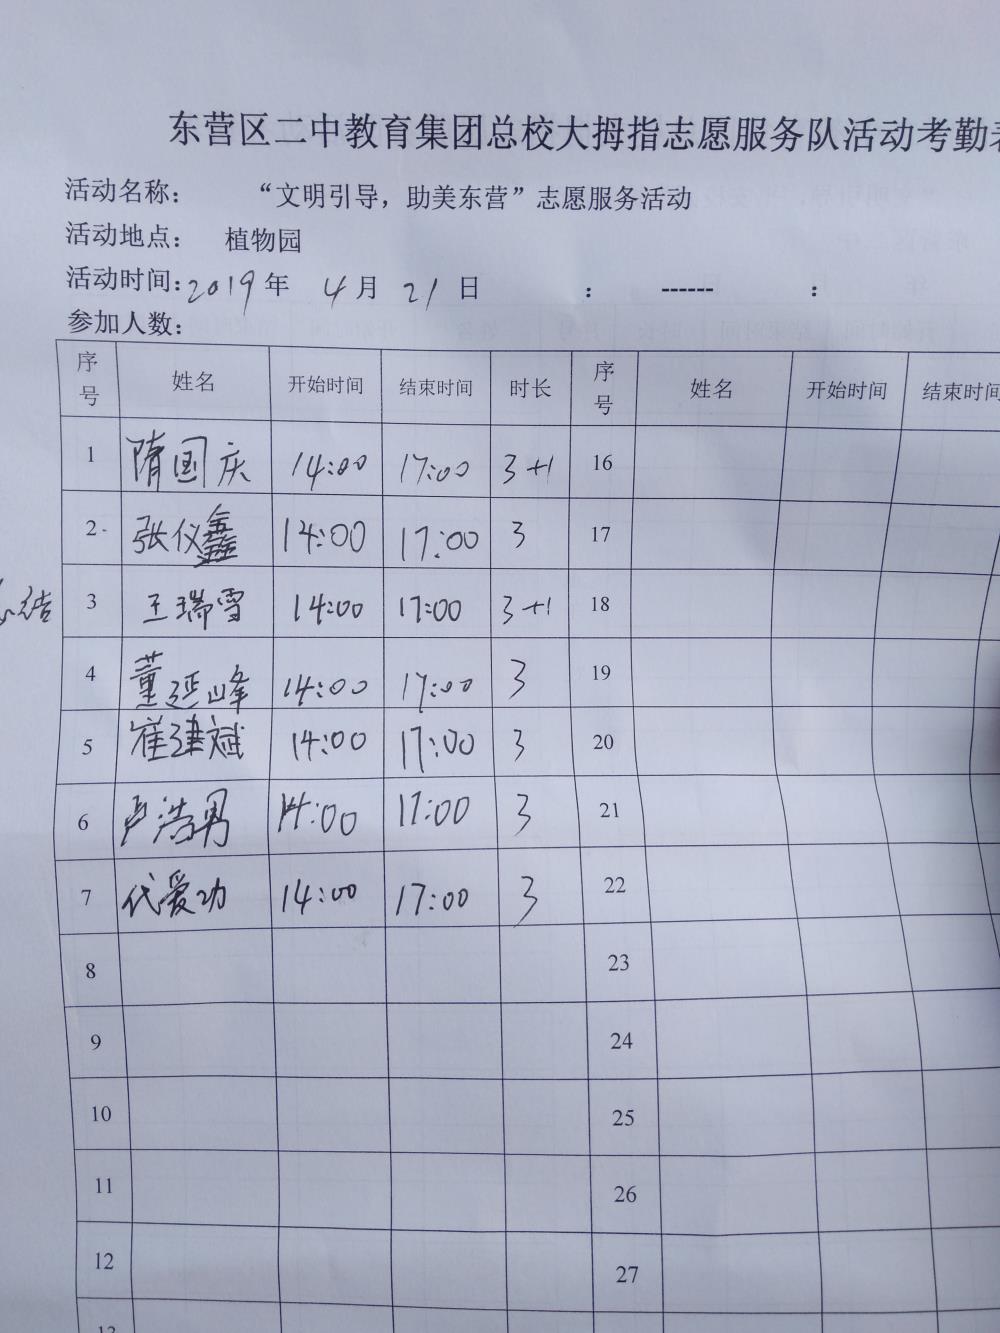 东营区二中教育集团总校大拇指志愿服务队活动考勤表
活动名称： “文明引导，助美东营”志愿服务活动
活动地点： 植物园
活动时间：2019年 4月 21日 ： ------ ：
参加人数：
序号 姓名 开始时间 结束时间 时长 序号 姓名 开始时间 结束时间
1 隋国庆 14:00 17:00 3+1 16
2 张仪鑫 14:00 17:00 3 17
3 王瑞雪 14:00 17:00 3+1 18
4 董延峰 14:00 17:00 3 19
5 崔建斌 14:00 17:00 3 20
6 卢浩男 14:00 17:00 3 21
7 代爱功 14:00 17:00 3 22
8 23
9 24
10 25
11 26
12 27
13